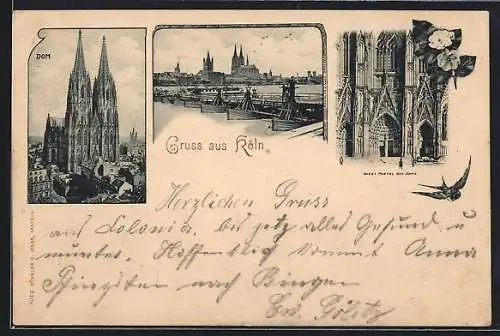 DOM
Gruss aus Köln.
HAUPT-PORTAL DES DOMS
Herzlichen Gruss
aus Colonia, bis jetz alles Gesund u
munter. Hoffentlich kommt Anna
Pfingsten nach Bingen